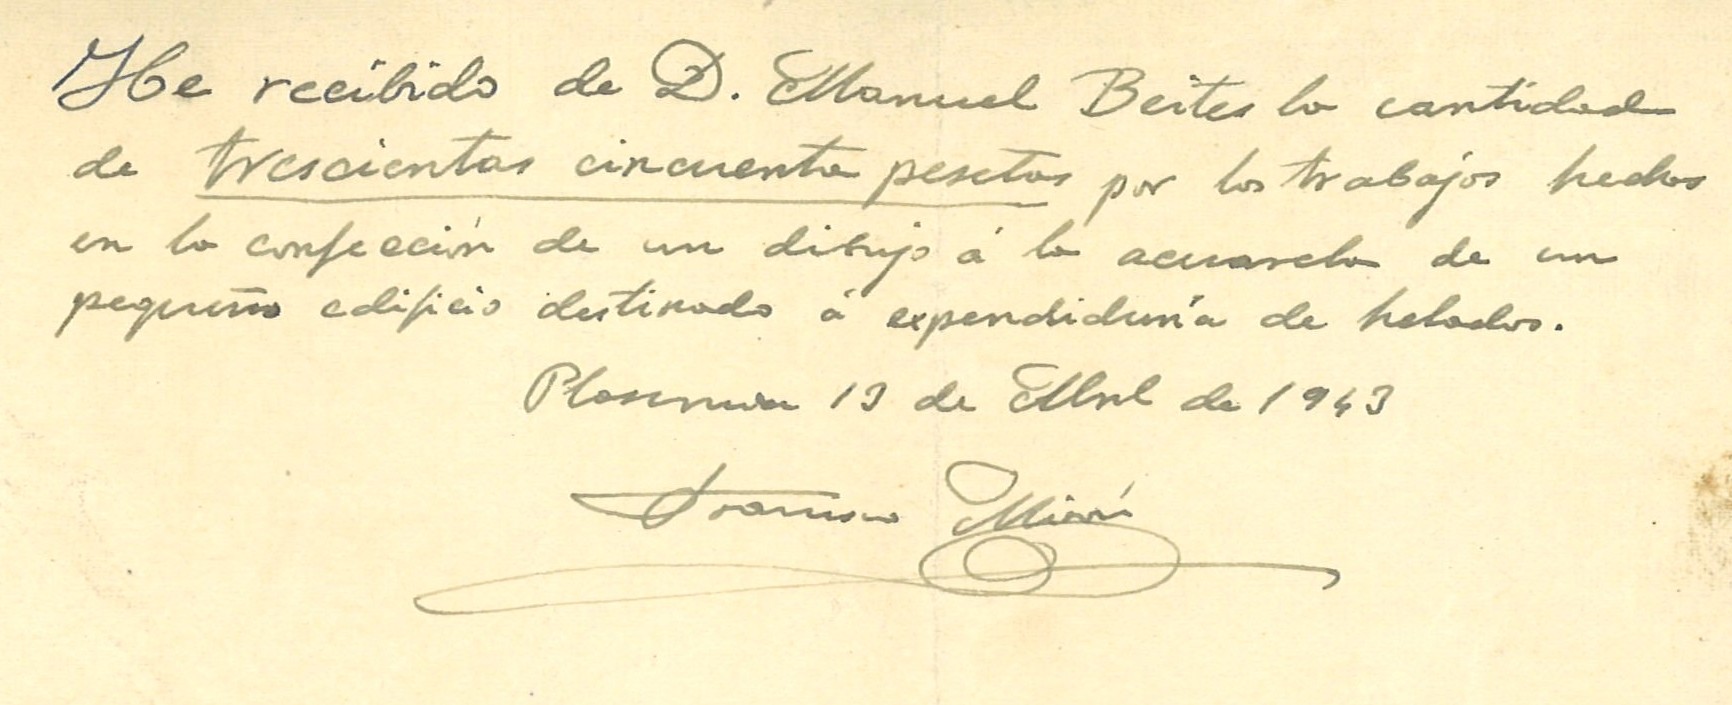 He recibido de D. Manuel Beites la cantidad
de trescientas cincuenta pesetas por los trabajos hechos
en la confección de un dibujo á la acuarela de un
pequeño edificio destinado á expendiduría de helados.
Plasencia 13 de Abril de 1943
Francisco Mirón